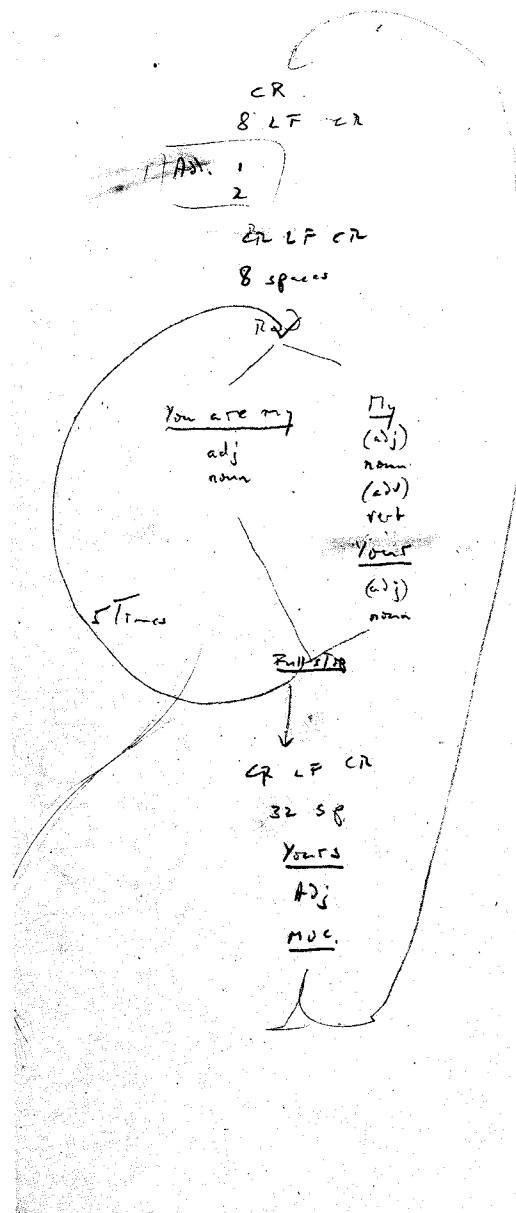 CR
8 LF CR
Adj. 1
2
CR LF CR
8 spaces
You are my
adj
noun
My
(adj)
noun
(adv)
verb
Your
(adj)
noun
5 Times
Full stop
CR LF CR
32 sp
Yours
Adj
MUC.